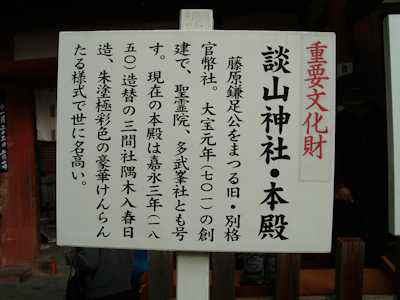 重要文化財
談山神社・本殿
藤原鎌足公をまつる旧・別格
官幣社。大宝元年(七〇一)の創
建で、聖霊院、多武峯社とも号
す。現在の本殿は嘉永三年(一八
五〇)造替の三間社隅木入春日
造、朱塗極彩色の豪華けんらん
たる様式で世に名高い。